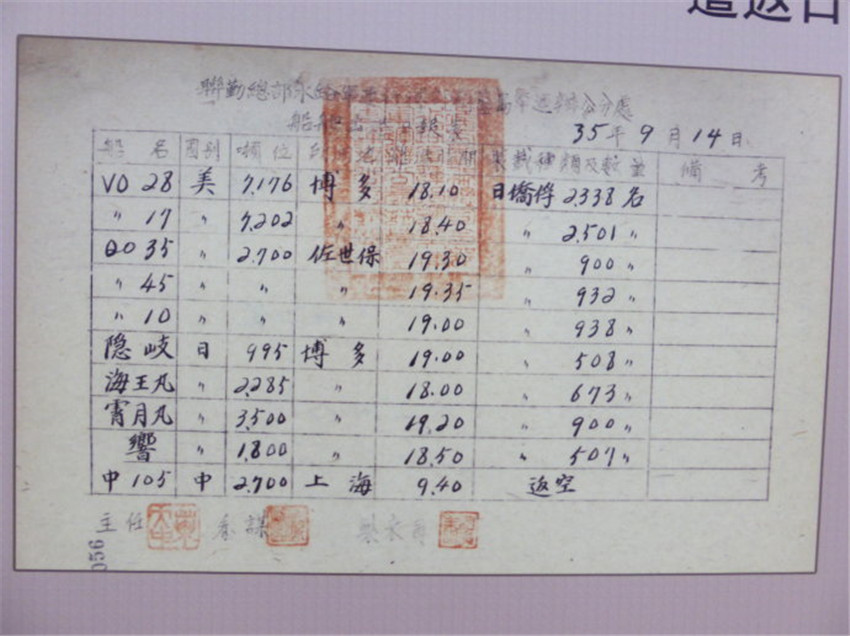 遣返日
聯勤總部
35年9月14日
船名 國別 噸位 裝載種類及數量 備考
VO 28 美 7,176 博多 18.10 日僑俘 2,338名
〃 17 〃 7,202 〃 18.40 〃 2,501〃
QO 35 〃 2,700 佐世保 19.30 〃 900〃
〃 45 〃 〃 〃 19.35 〃 932〃
〃 10 〃 〃 〃 19.00 〃 938〃
隐岐 日 995 博多 19.00 〃 508〃
海王丸 〃 2,285 〃 18.00 〃 673〃
宵月丸 〃 3,500 〃 19.20 〃 900〃
響 〃 1,800 〃 18.50 〃 507〃
中 105 中 2,700 上海 9.40 返空
主任 參謀
056